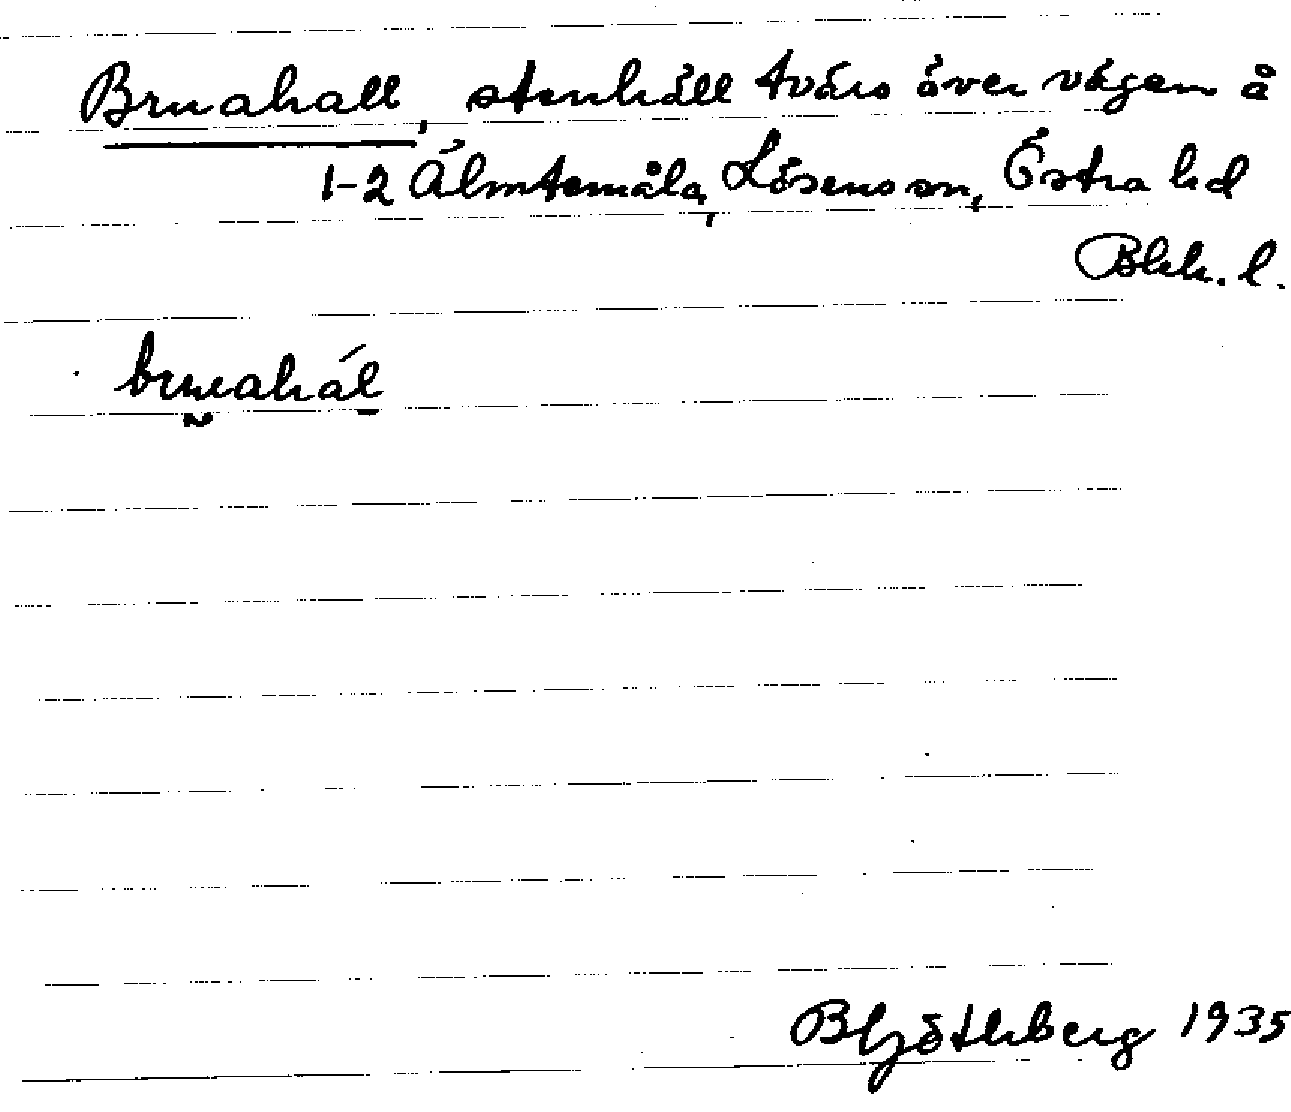 Bruahall, stenhäll tvärs över vägen å
1-2 Älmtamåla, Lösens sn, Östra hd
Blek. l.
bruahál
B Götlberg 1935